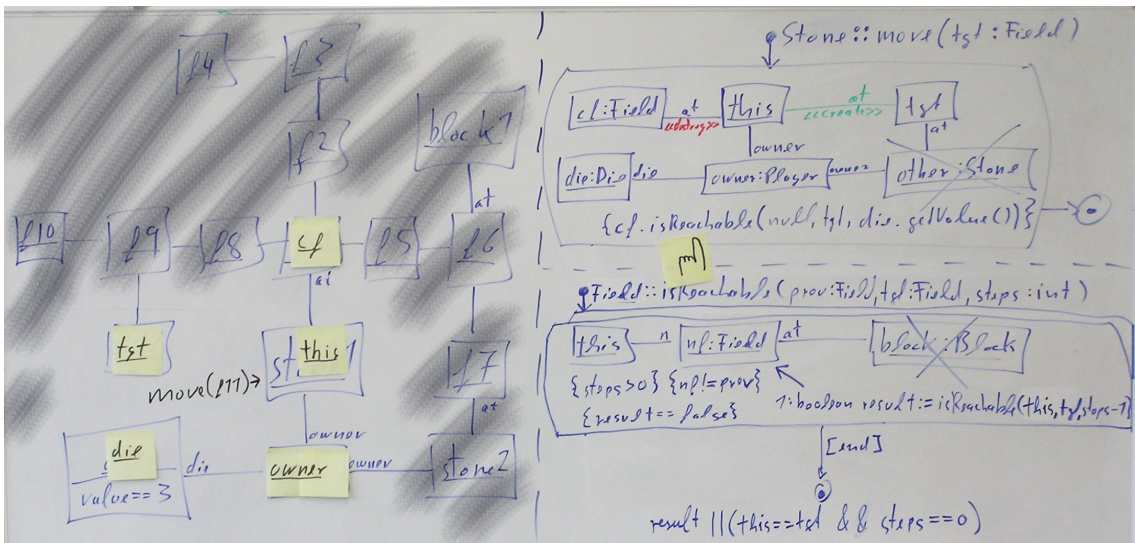 f4
f3
f2
block1
at
f10
f9
f8
cf
f5
f6
at
tgt
st
this
1
f7
move(f11)
at
owner
die
value==3
die
owner
owner
stone2
Stone::move(tgt:Field)
cf:Field
at
<<destroy>>
this
at
<<create>>
tgt
owner
at
die:Die
die
owner:Player
owner
other:Stone
{cf.isReachable(null,tgt,die.getValue())}
Field::isReachable(prev:Field,tgt:Field,steps:int)
this
n
nf:Field
at
block:Block
{steps>0} {nf!=prev}
1:boolean result:=isReachable(this,tgt,steps-1)
{result==false}
[end]
result ||(this==tgt && steps==0)